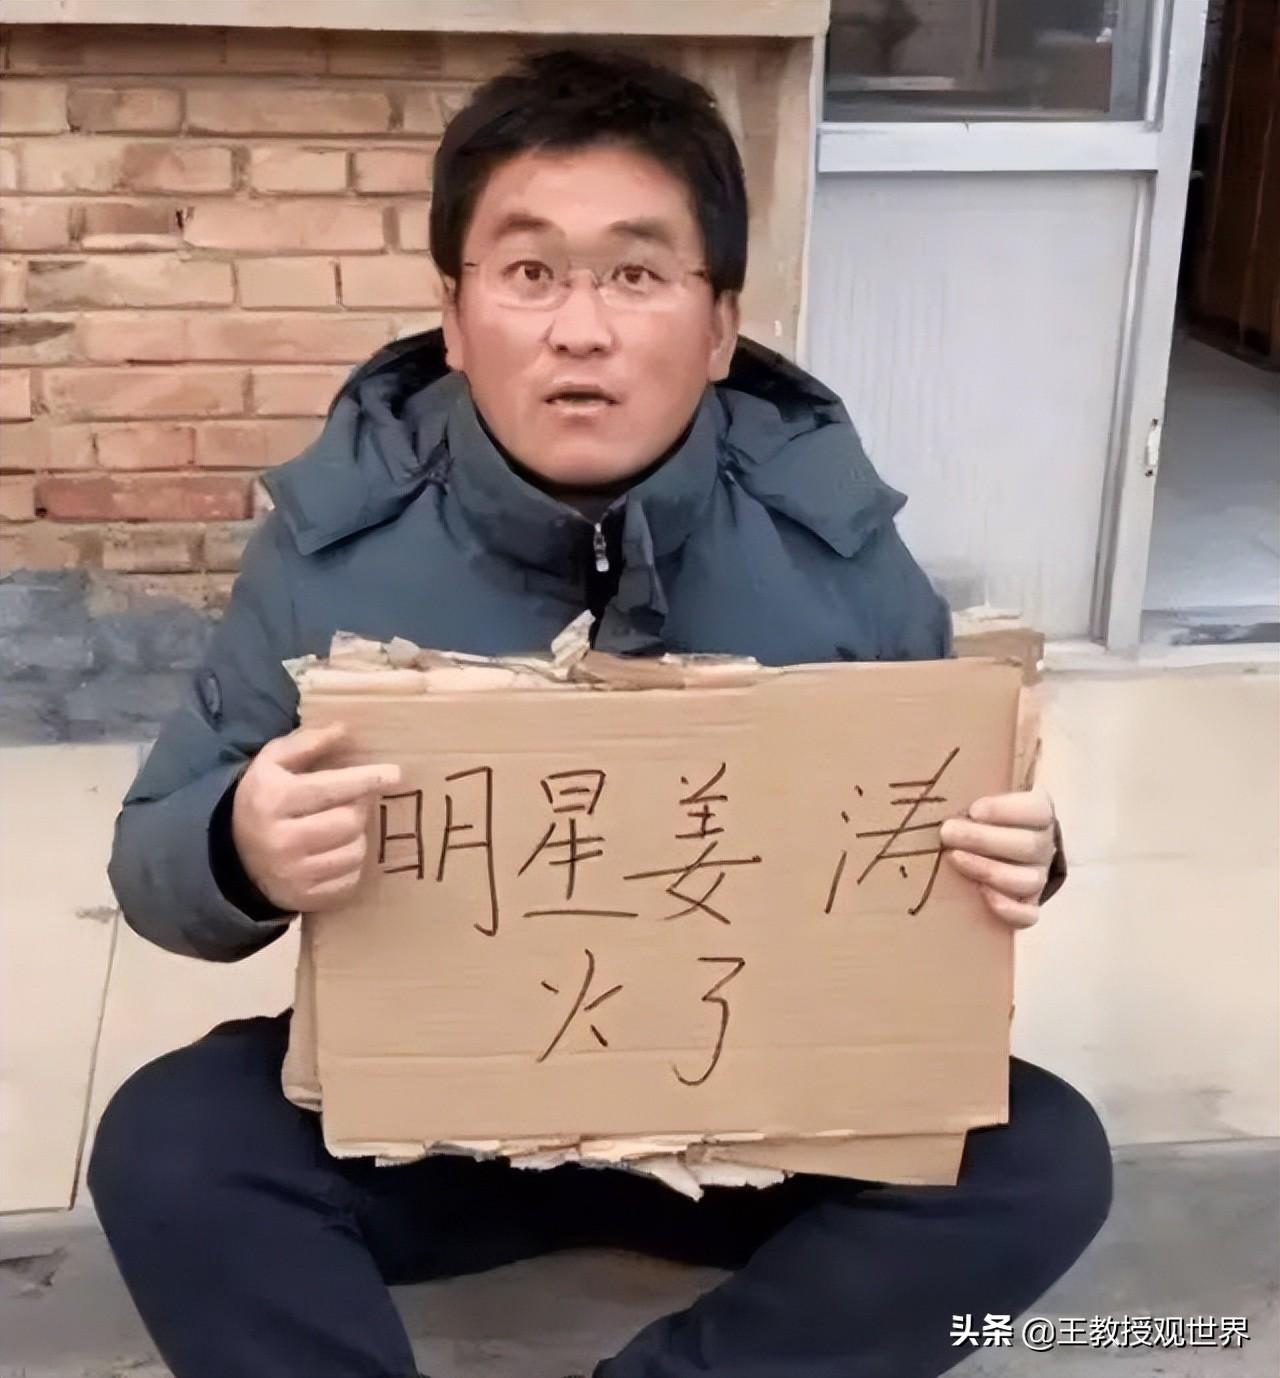 明星姜涛
火了
头条 @王教授观世界